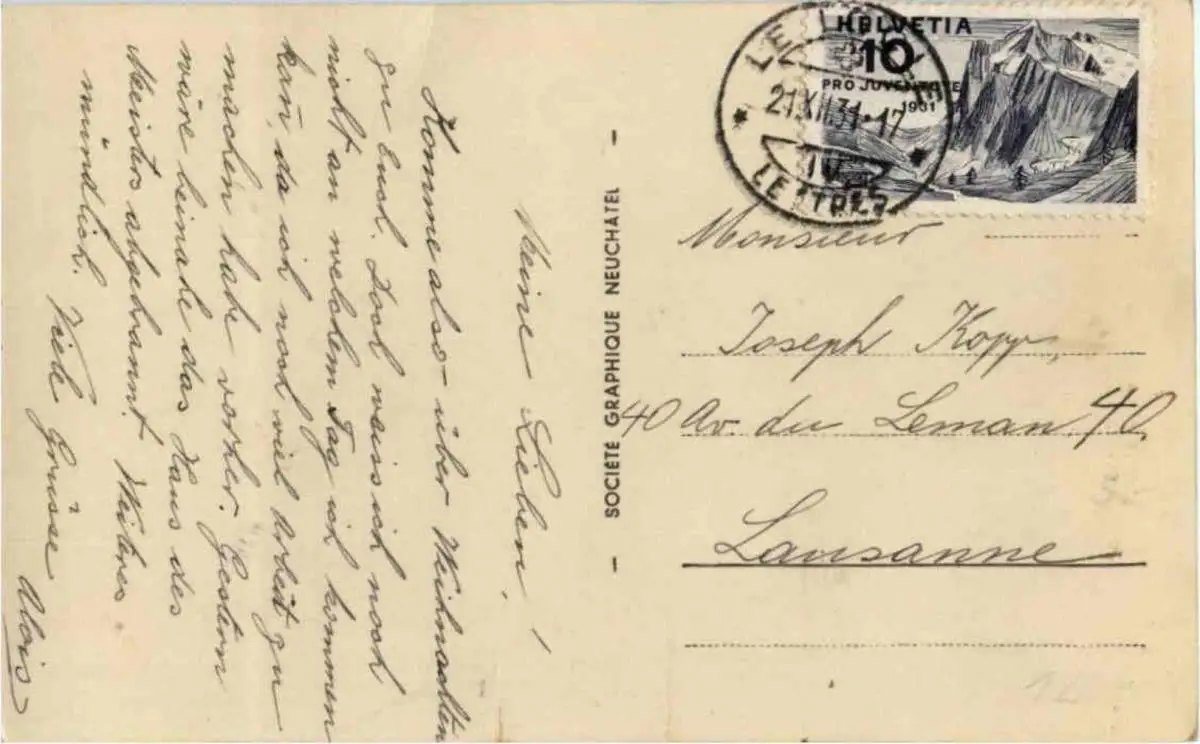 Meine Lieben!
Komme also über Weihnachten
zu Euch. Doch weiss ich noch
nicht an welchem Tag ich kommen
kan̄, da ich noch viel Arbeit zu
machen habe vorher. Gestern
wäre beinahe das Haus des
Meisters abgebrannt. Weiteres
mündlich. Viele Grüsse
Alois
SOCIÉTÉ GRAPHIQUE NEUCHÂTEL
HELVETIA
10
PRO JUVENTUTE
1931
LE LOCLE
21.XII.31.17
LETTRES
Monsieur
Joseph Kopp,
40 Av. du Leman 40
Lausanne